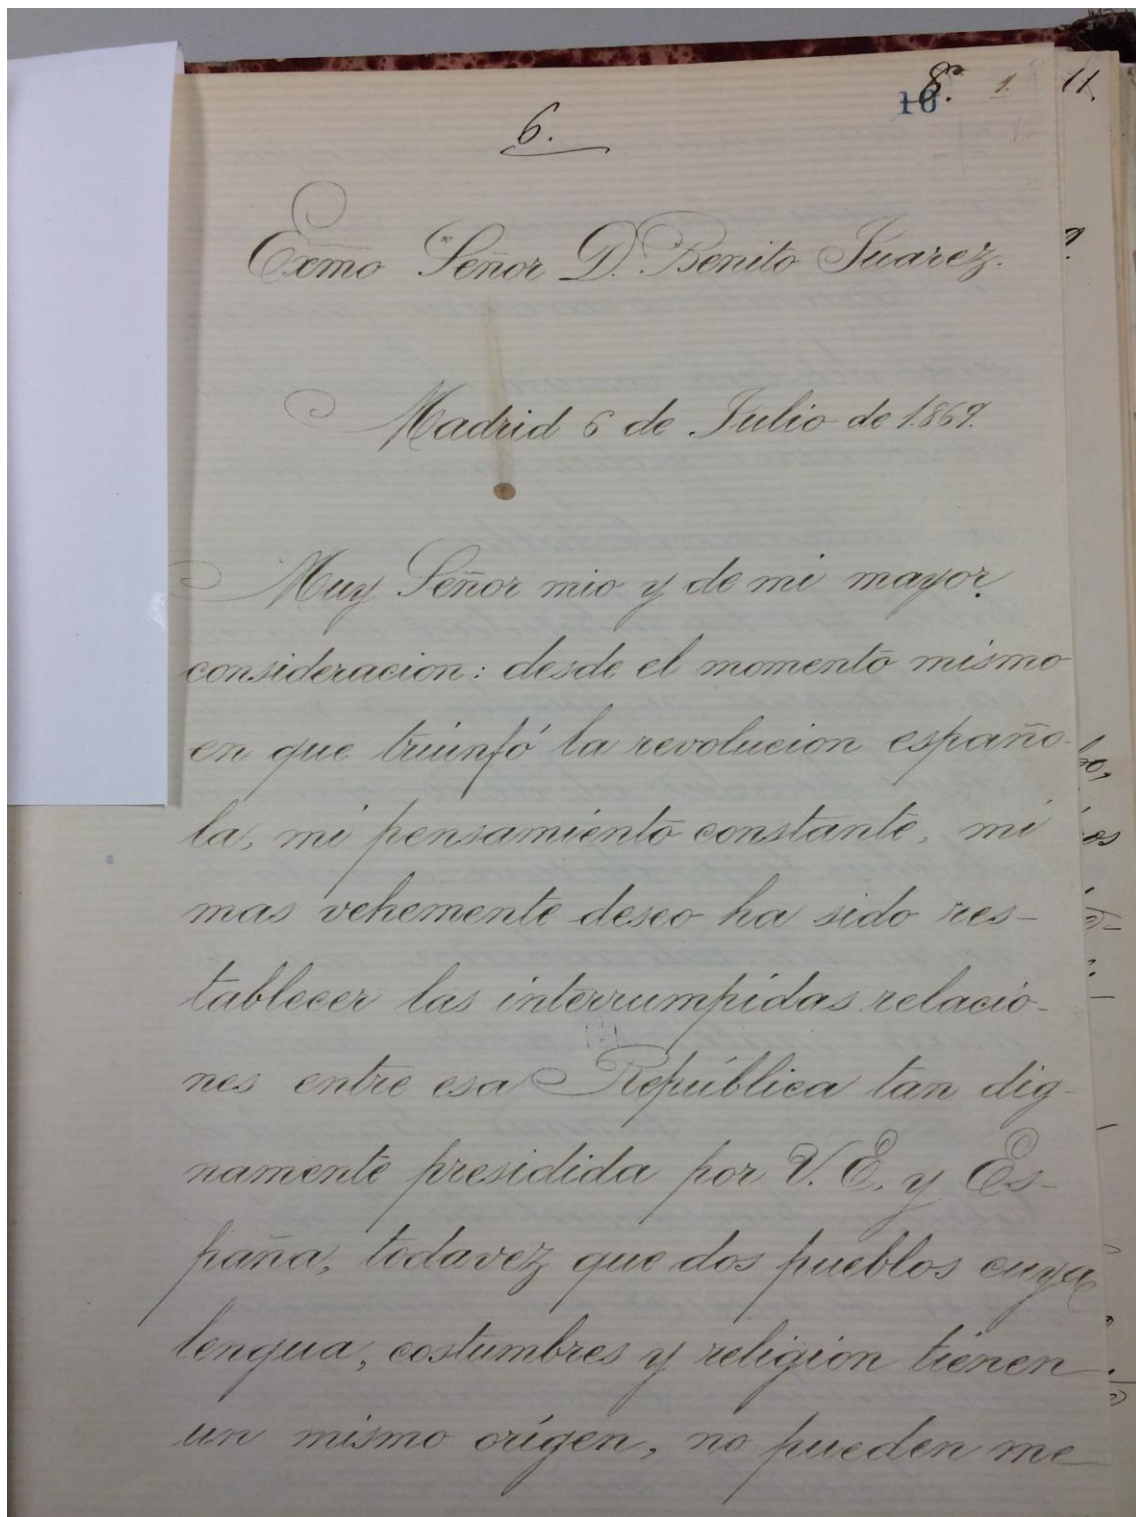 8ª 1. 11.
10
6.
Exmo Señor D. Benito Juarez.
Madrid 6 de Julio de 1.869.
Muy Señor mio y de mi mayor
consideracion: desde el momento mismo
en que triunfó la revolucion españo-
la, mi pensamiento constante, mi
mas vehemente deseo ha sido res-
tablecer las interrumpidas relacio-
nes entre esa República tan dig-
namente presidida por V. E. y Es-
paña, toda vez que dos pueblos cuya
lengua, costumbres y religion tienen
un mismo orígen, no pueden me